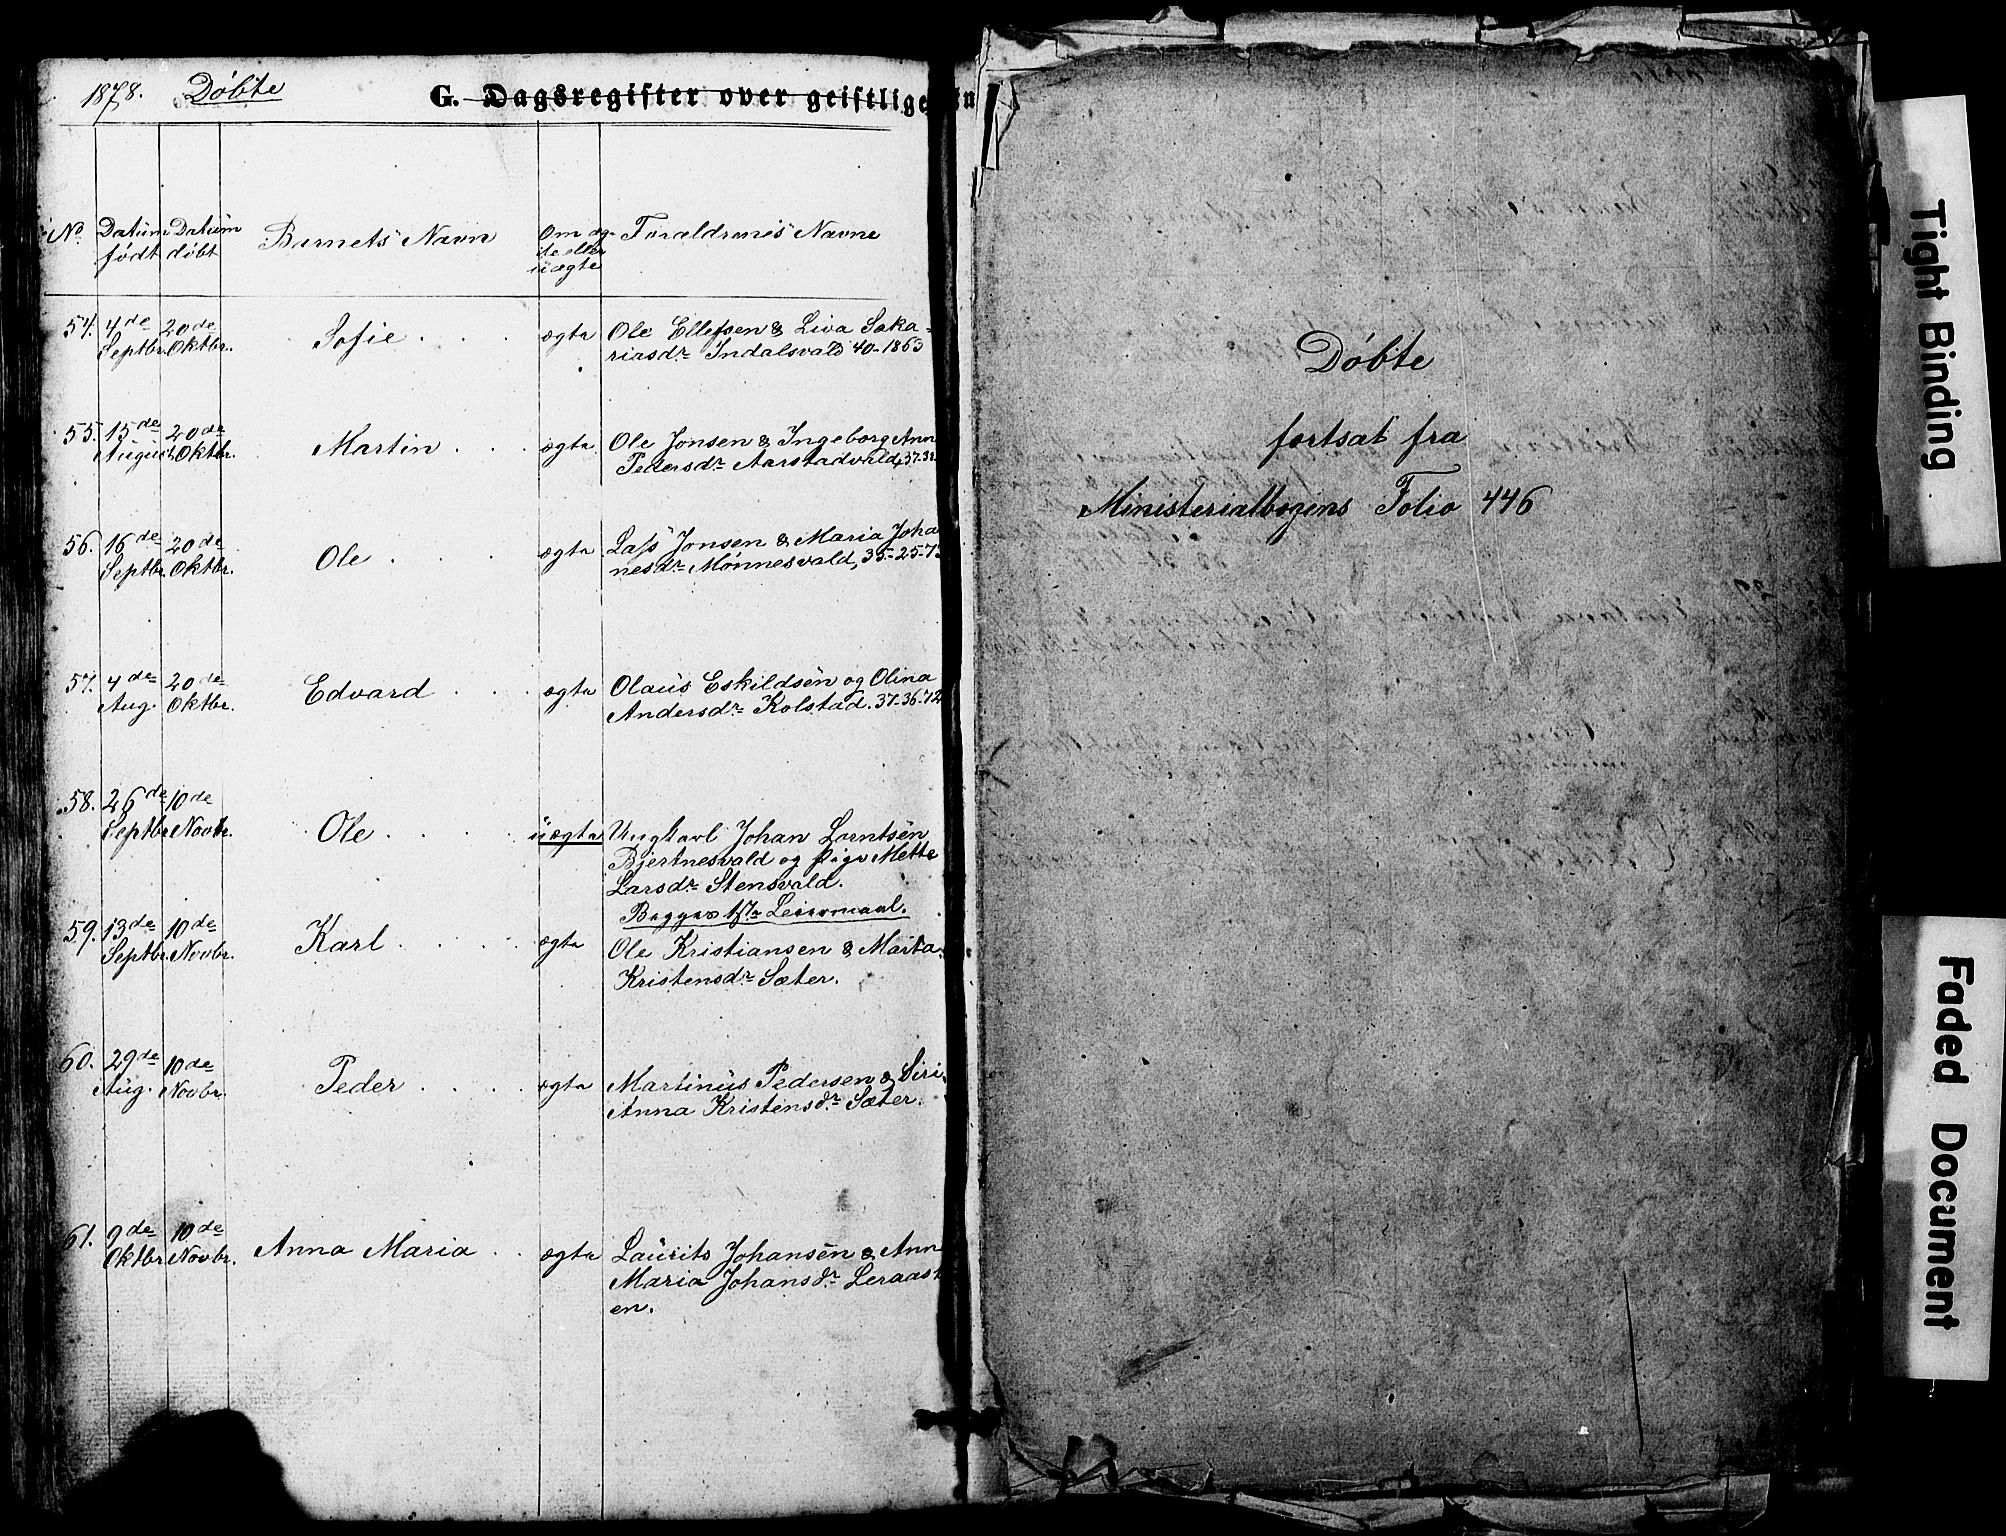 1878. Döbte
G. Dagsregister over geistlige
No. Datum født Datum døbt Barnets Navn Om ægte eller uægte Forældrenes Navne
54. 4de Septbr. 20de Oktbr. Sofie . . . ægte Ole Ellefsen & Liva Saka-
riasdr. Indalsvald 40-1863
55. 15de August 20de Oktbr. Martin . . . ægte Ole Jonsen & Ingeborg Ann
Pedersdr. Aarstadvald, 37-
56. 16de Septbr. 20de Oktbr. Ole . . . ægte Lass Jonsen & Maria Joha
nesdr. Mönnesvald, 35-25-7
57. 4de Aug. 20de Oktbr. Edvard . . . ægte Olaus Eskildsen og Olina
Andersdr. Kolstad. 37-36-72
58. 26de Septbr. 10de Novbr. Ole . . . uægte Ungkarl Johan Lorntsen
Bjertnesvald og Pige Mette
Larsdr. Stensvald.
Begges 1ste Leiermaal.
59. 13de Septbr. 10de Novbr. Karl . . . ægte Ole Kristiansen & Marta
Kristensdr. Sæter.
60. 29de Aug. 10de Novbr. Peder . . . ægte Martinus Pedersen & Siri
Anna Kristensdr. Sæter.
61. 9de Oktbr. 10de Novbr. Anna Maria . . ægte Laurits Johansen & Ann
Maria Johansdr. Leraast
en.
Döbte
fortsat fra
Ministerialbogens Folio 446
Tight Binding
Faded Document